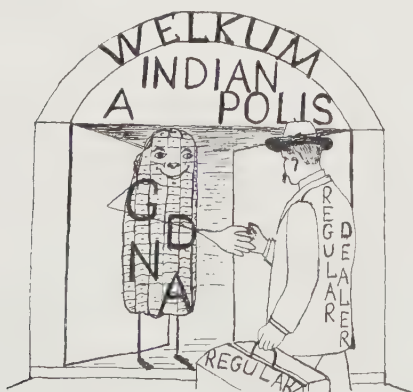 WELKUM
INDIAN
A POLIS
G
D
N
A
REGULAR
DEALER
REGULAR